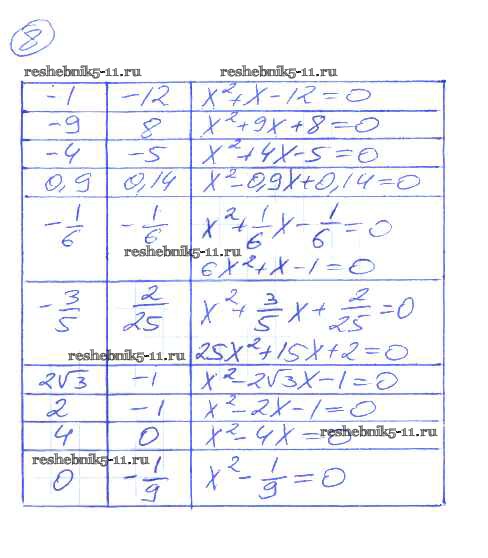 8
reshebnik5-11.ru reshebnik5-11.ru
-1 -12 x²+x-12=0
-9 8 x²+9x+8=0
-4 -5 x²+4x-5=0
0,9 0,14 x²-0,9x+0,14=0
-1/6 -1/6 x²+1/6x-1/6=0
reshebnik5-11.ru
6x²+x-1=0
-3/5 2/25 x²+3/5x+2/25=0
reshebnik5-11.ru 25x²+15x+2=0
2√3 -1 x²-2√3x-1=0
2 -1 x²-2x-1=0
4 0 x²-4x=0 reshebnik5-11.ru
reshebnik5-11.ru
0 -1/9 x²-1/9=0